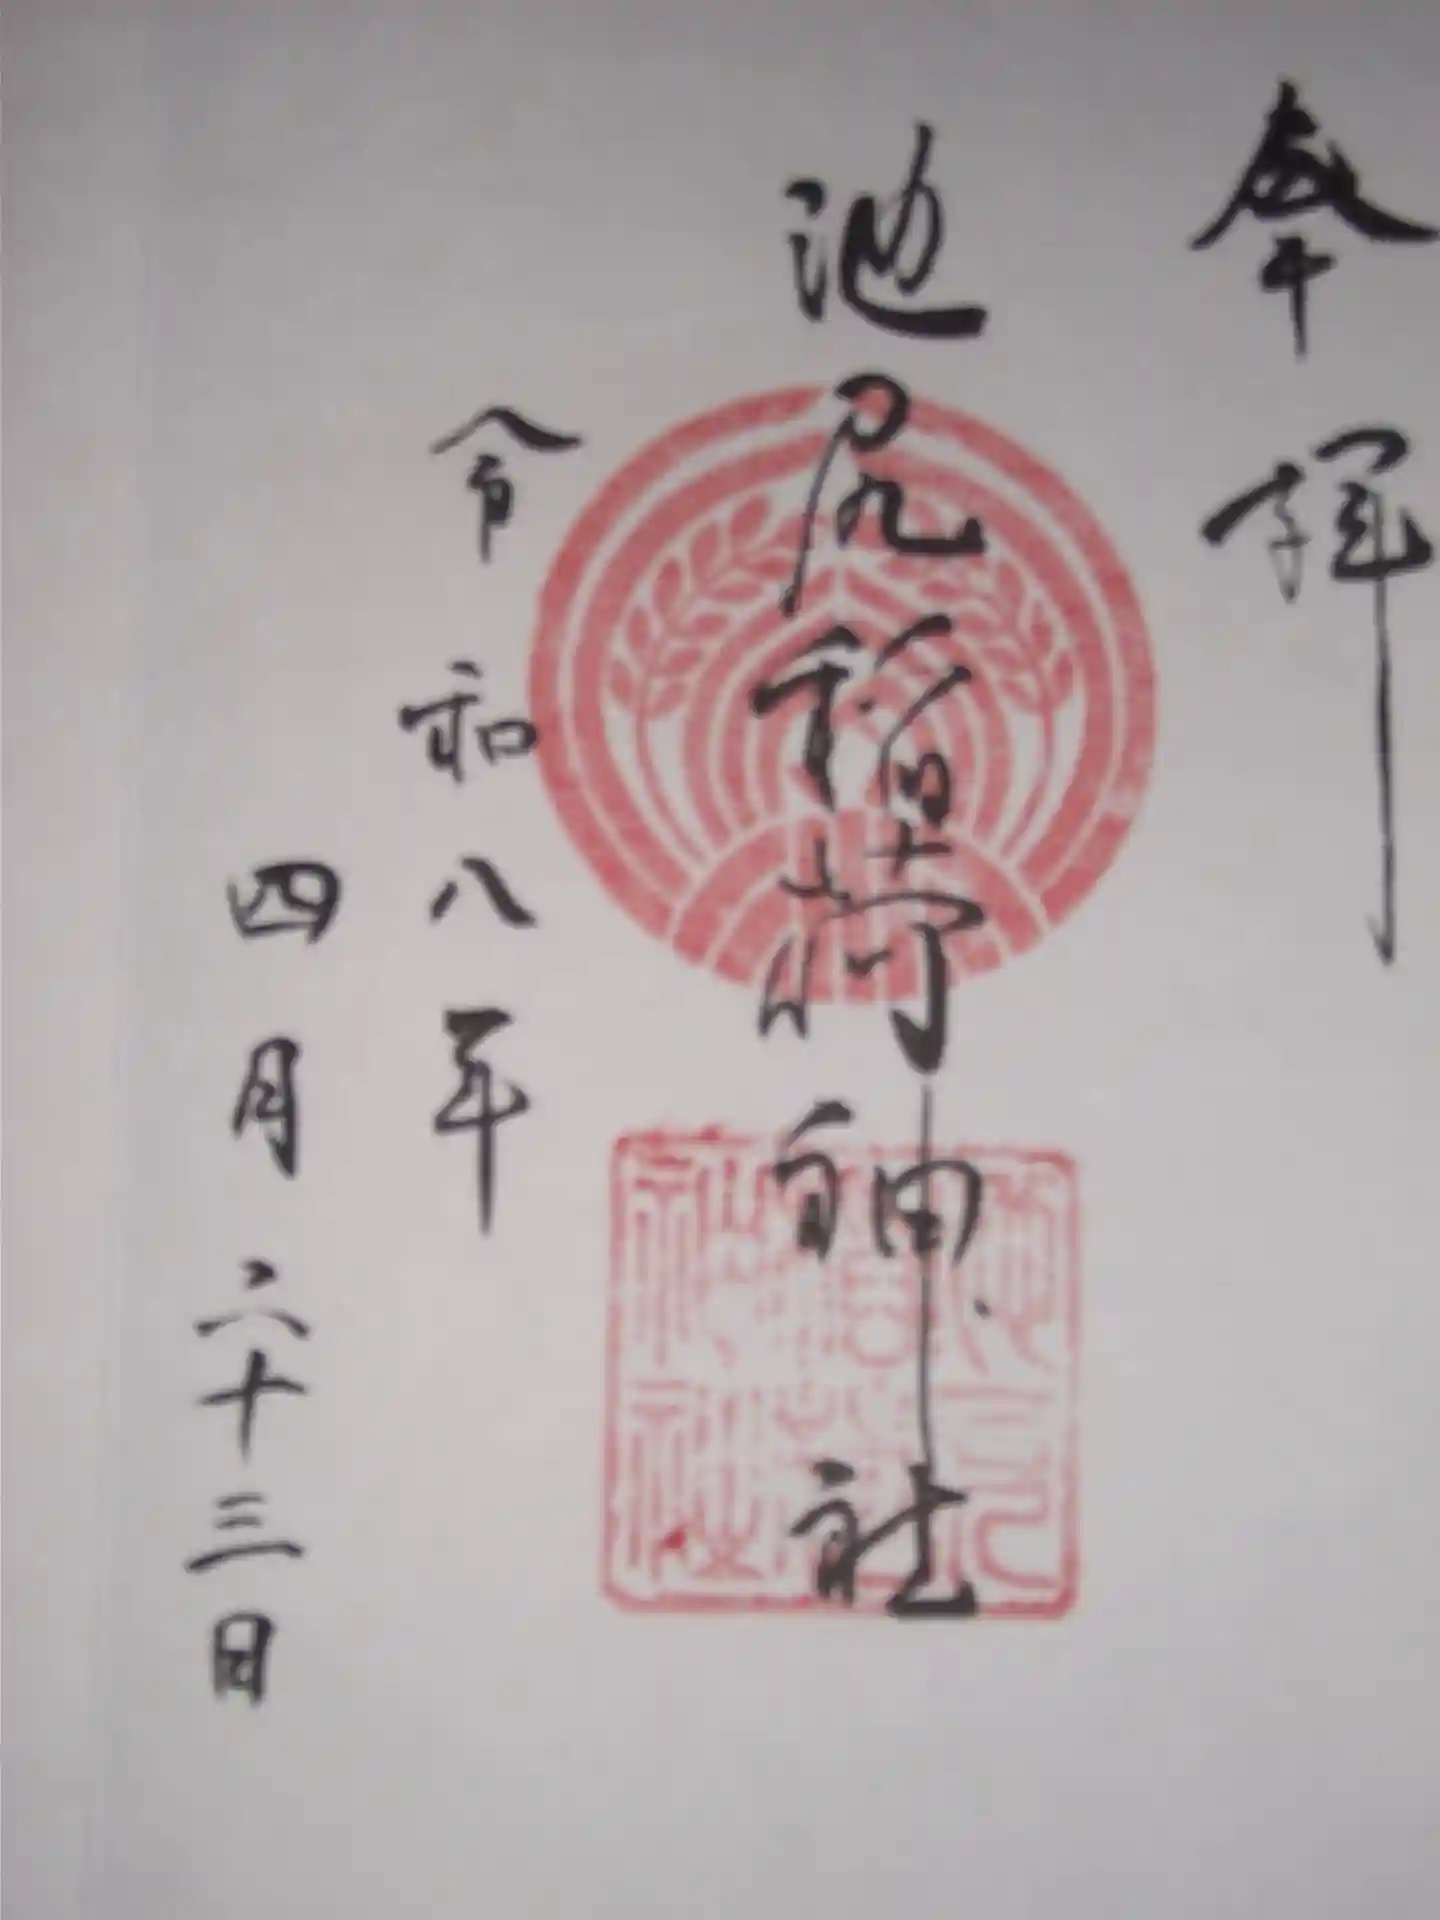 奉拝
池尻稲荷神社
令和八年
四月二十三日